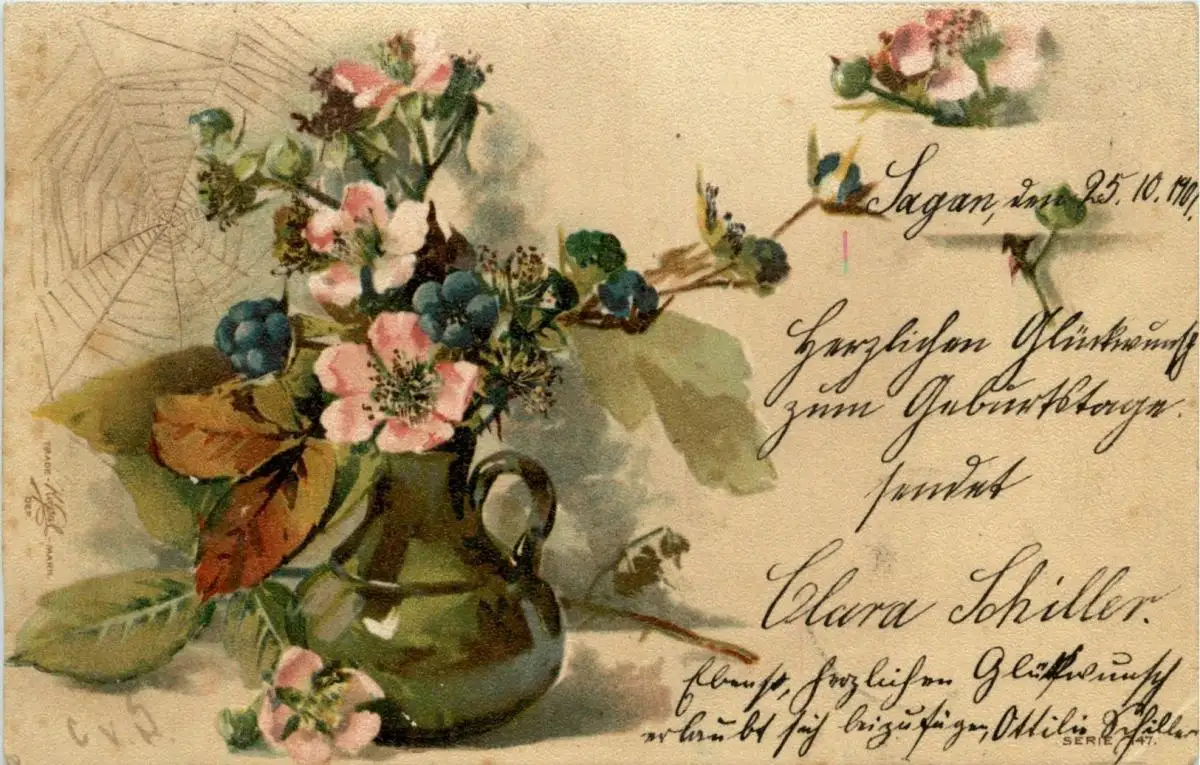 Sagan, den 25. 10. 1901
Herzlichen Glückwunsch
zum Geburtstage.
sendet
Clara Schiller.
Ebenso, herzlichen Glückwunsch
erlaubt sich beizufügen, Ottilie Schiller
SERIE 147.
TRADE MARK.
C v. D